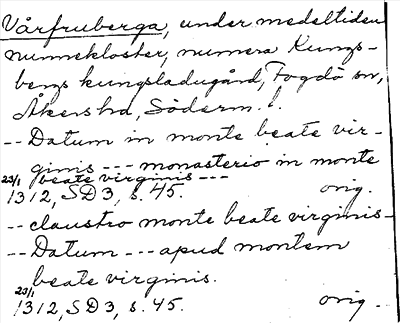 Vårfruberga, under medeltiden
nunnekloster, numera Kungs-
bergs kungsladugård, Fogdö sn,
Åkers hd, Söderm. l.
-- Datum in monte beate vir-
ginis --- monasterio in monte
beate virginis ---
23/1 1312, SD3, s. 45. orig.
-- claustro monte beate virginis-
-- Datum --- apud montem
beate virginis.
23/1 1312, SD3, s. 45. orig.